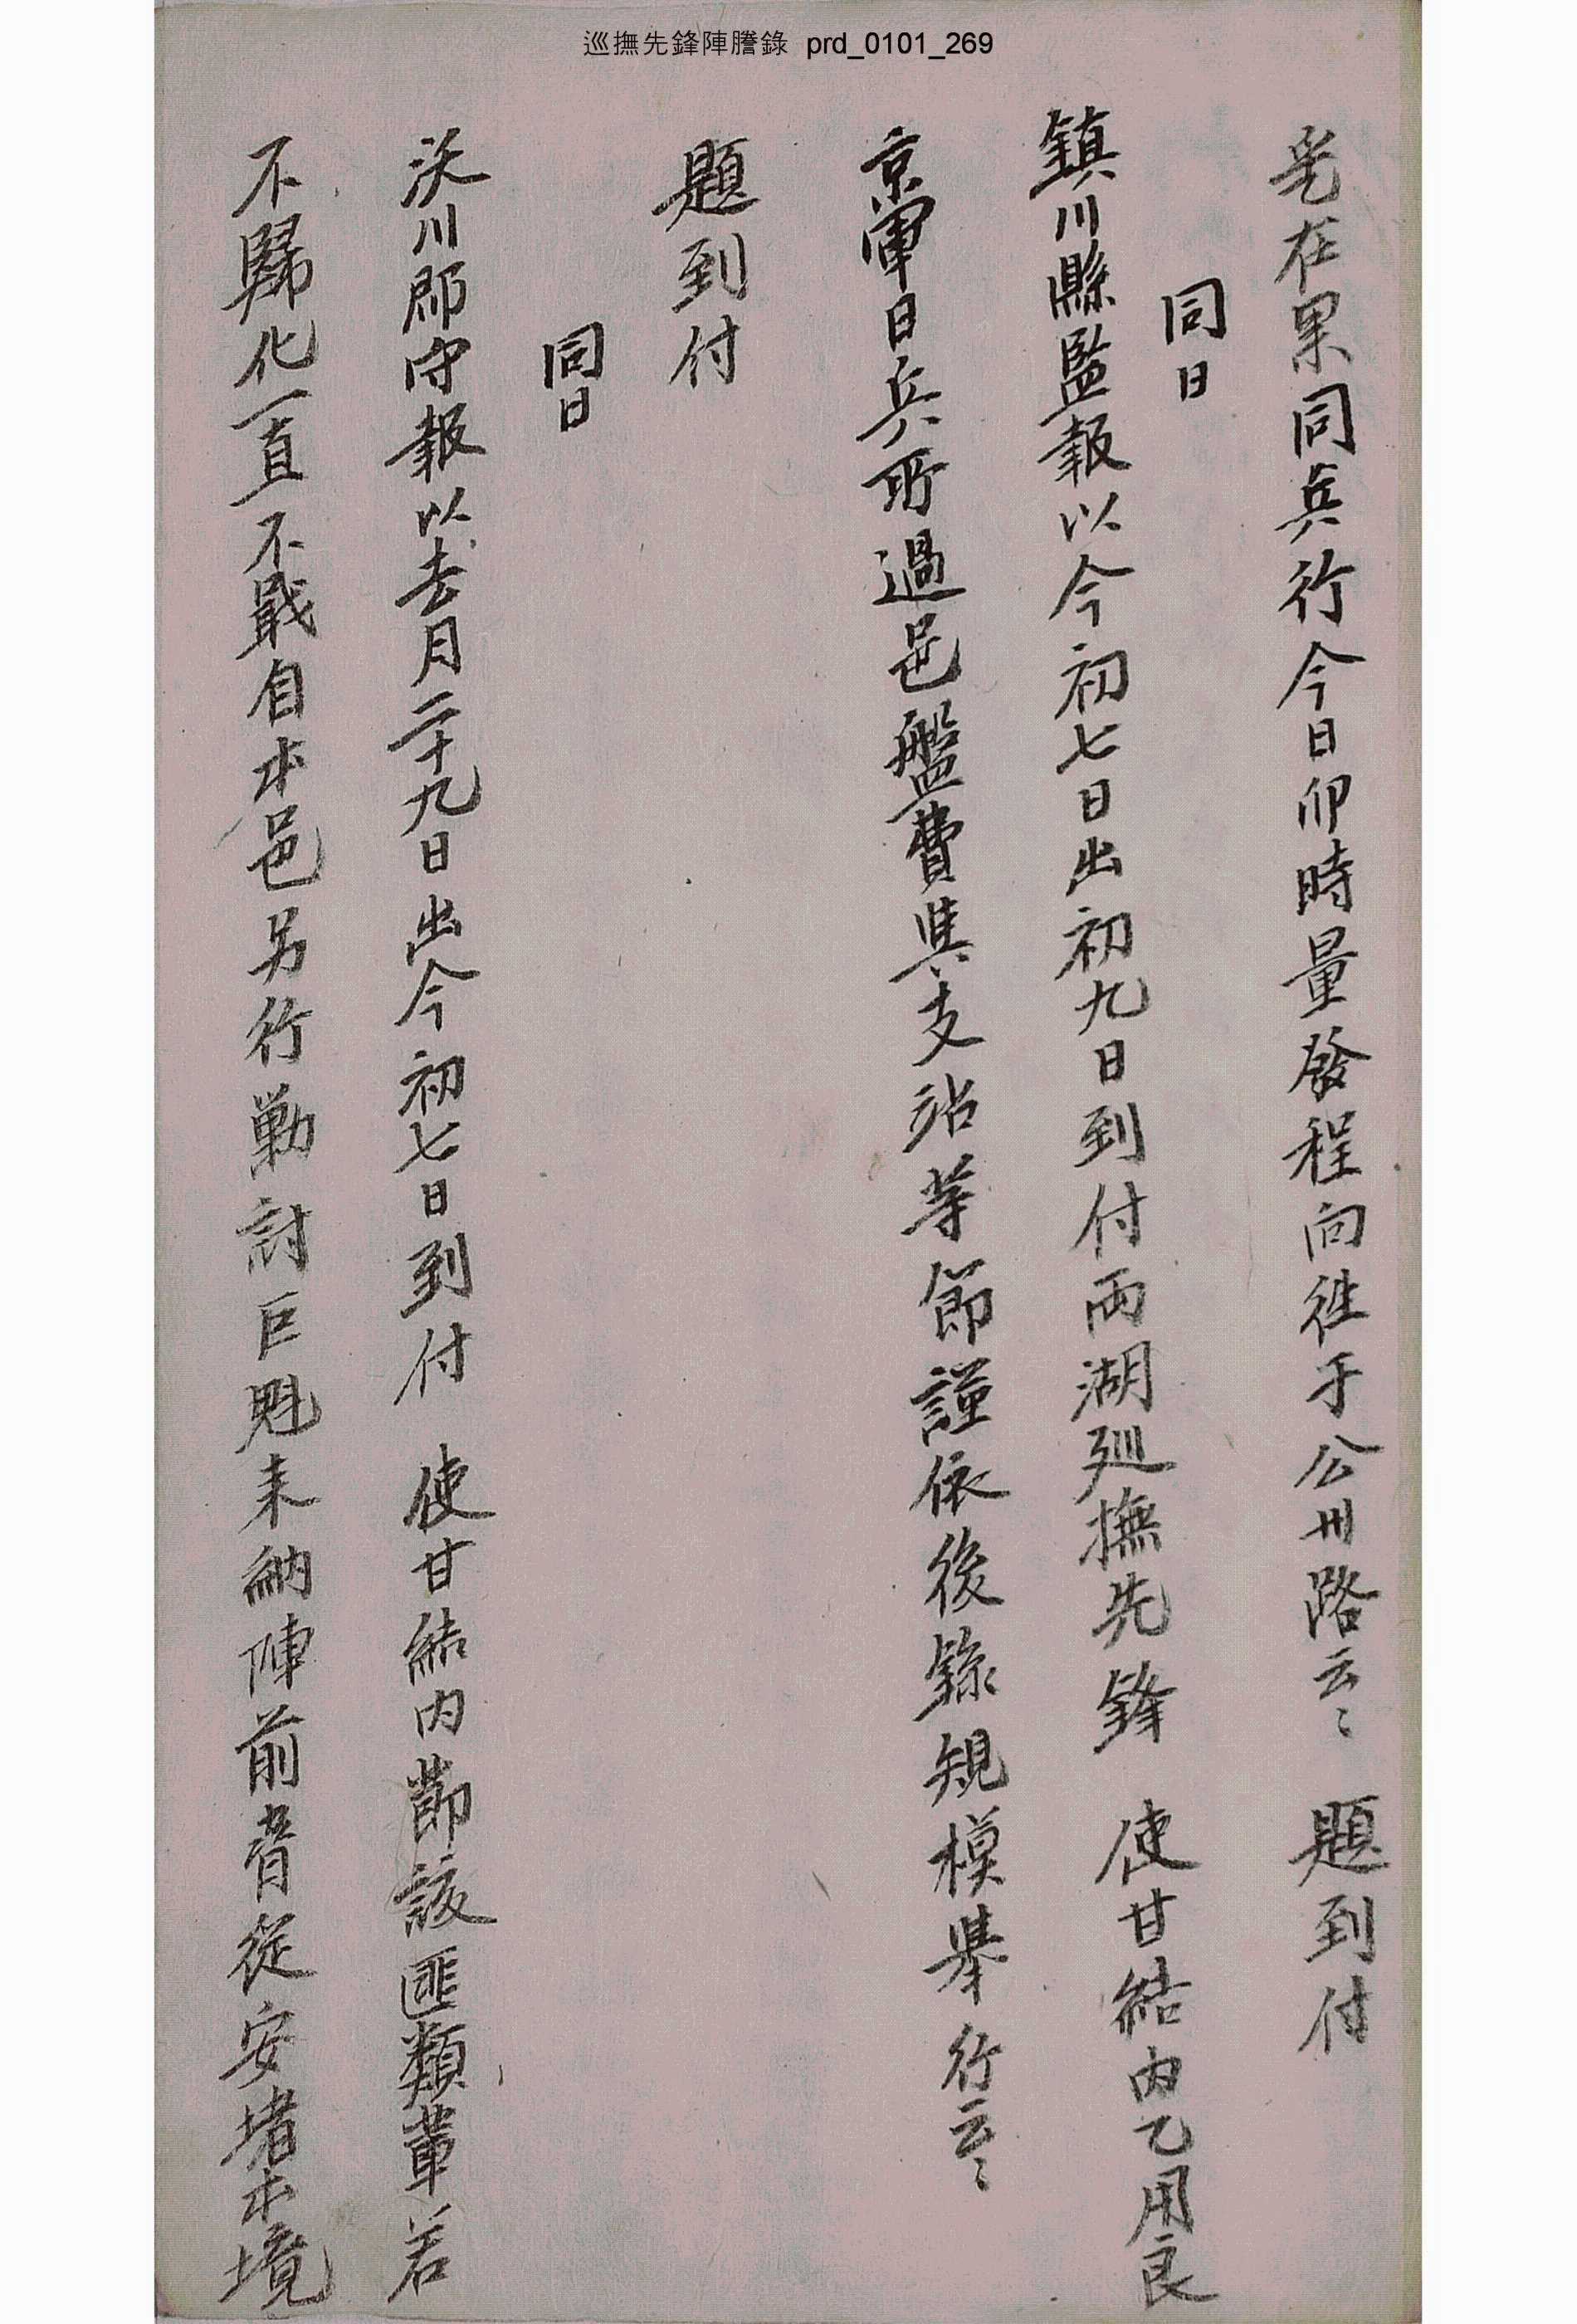 巡撫先鋒陣謄錄 prd_0101_269
是在果同兵行今日卯時量發程向往于公州路云〻 題到付
同日
鎭川縣監報以今初七日出初九日到付両湖廵撫先鋒 使甘結內乙用良
京軍日兵所過邑盤費與支站等節謹依後錄規模擧行云〻
題到付
同日
沃川郡守報以去月二十九日出今初七日到付 使甘結內節該匪類輩若
不歸化一直不戢自本邑另行勦討巨魁来納陣前脅從安堵本境